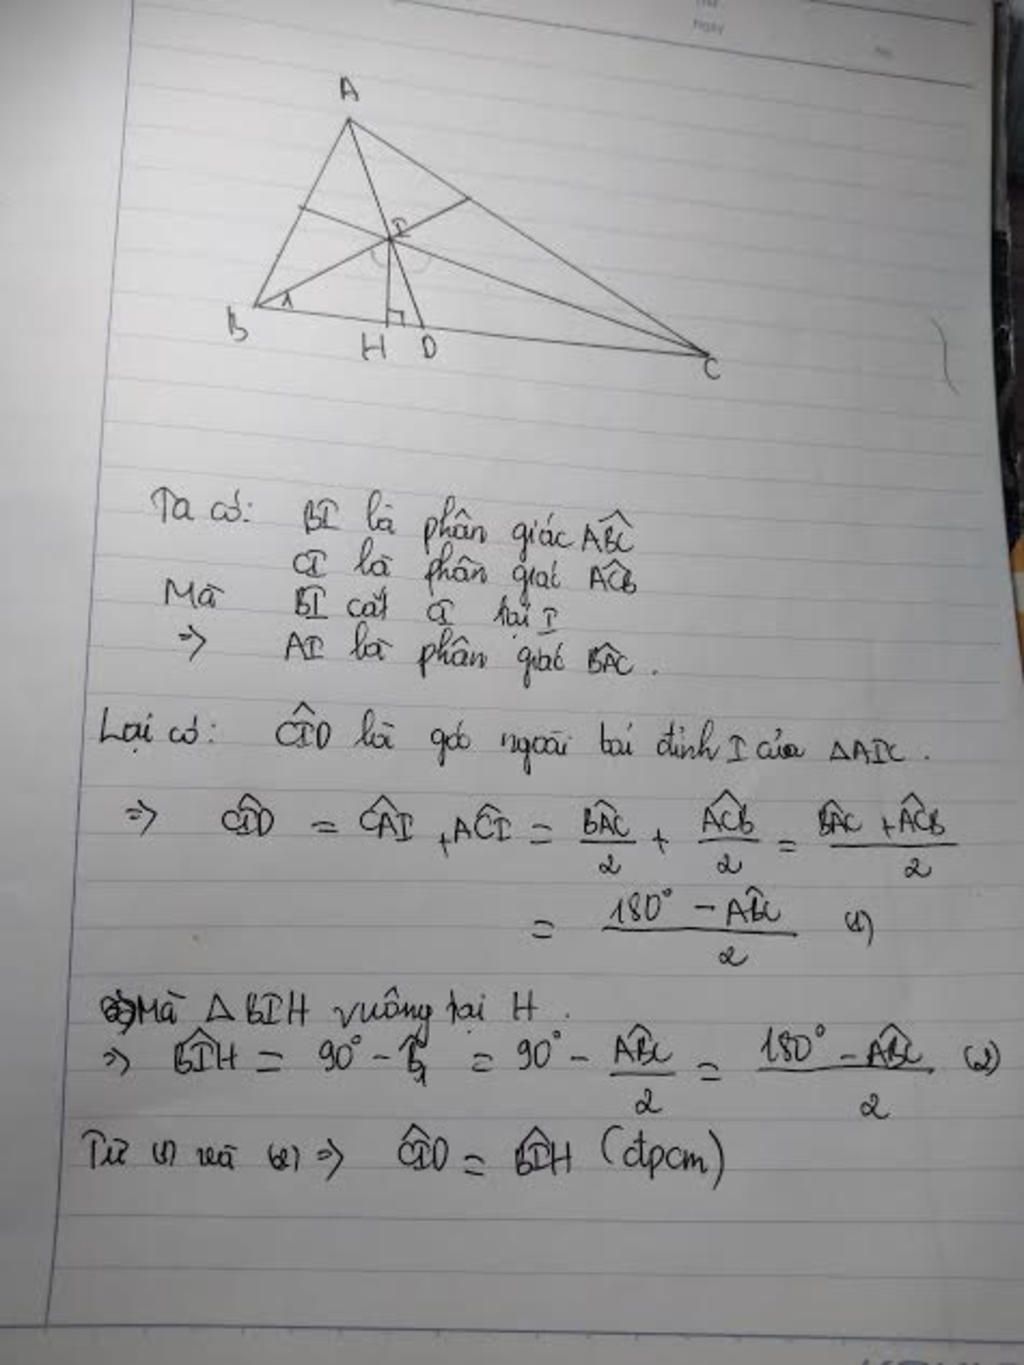 Ngày
A
I
B
1
H
D
C
Ta có: BI là phân giác \widehat{ABC}
CI là phân giác \widehat{ACB}
Mà BI cắt CI tại I
=> AI là phân giác \widehat{BAC}.
Lại có: \widehat{CID} là góc ngoài tại đỉnh I của ΔAIC.
=> \widehat{CID} = \widehat{CAI} + \widehat{ACI} = \frac{\widehat{BAC}}{2} + \frac{\widehat{ACB}}{2} = \frac{\widehat{BAC} + \widehat{ACB}}{2}
= \frac{180° - \widehat{ABC}}{2} (1)
Mà Δ BIH vuông tại H.
=> \widehat{BIH} = 90° - \widehat{B_1} = 90° - \frac{\widehat{ABC}}{2} = \frac{180° - \widehat{ABC}}{2} (2)
Từ (1) và (2) => \widehat{CID} = \widehat{BIH} (đpcm)